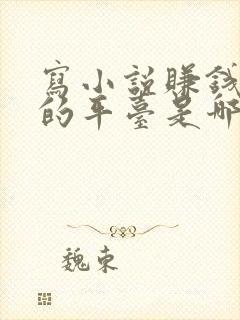 寫小說賺錢
的平臺是哪
魏東